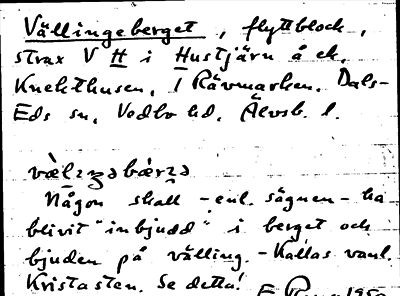 Vällingeberget, flyttblock,
strax V H i Hustjärn å ek.
Knekthusen, 1 Rävmarken. Dals-
Eds sn, Vedbo hd, Älvsb. l.
Någon skall - enl. sägnen - ha
blivit "inbjudd" i berget och
bjuden på välling. - Kallas vanl.
Kristasten. Se detta!